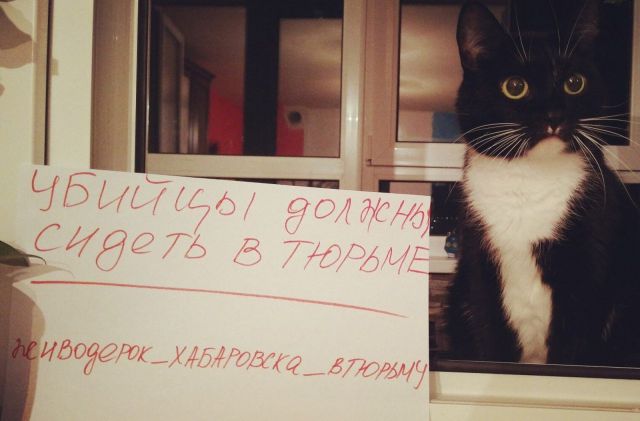 УБИЙЦЫ ДОЛЖНЫ
СИДЕТЬ В ТЮРЬМЕ
живодерок_ХАБАРОВСКА_ВТЮРЬМУ